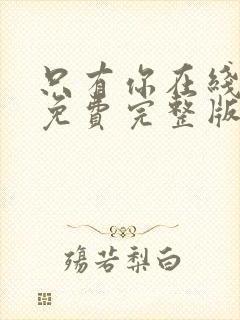 只有你在綫
免費完整版
殤若梨白